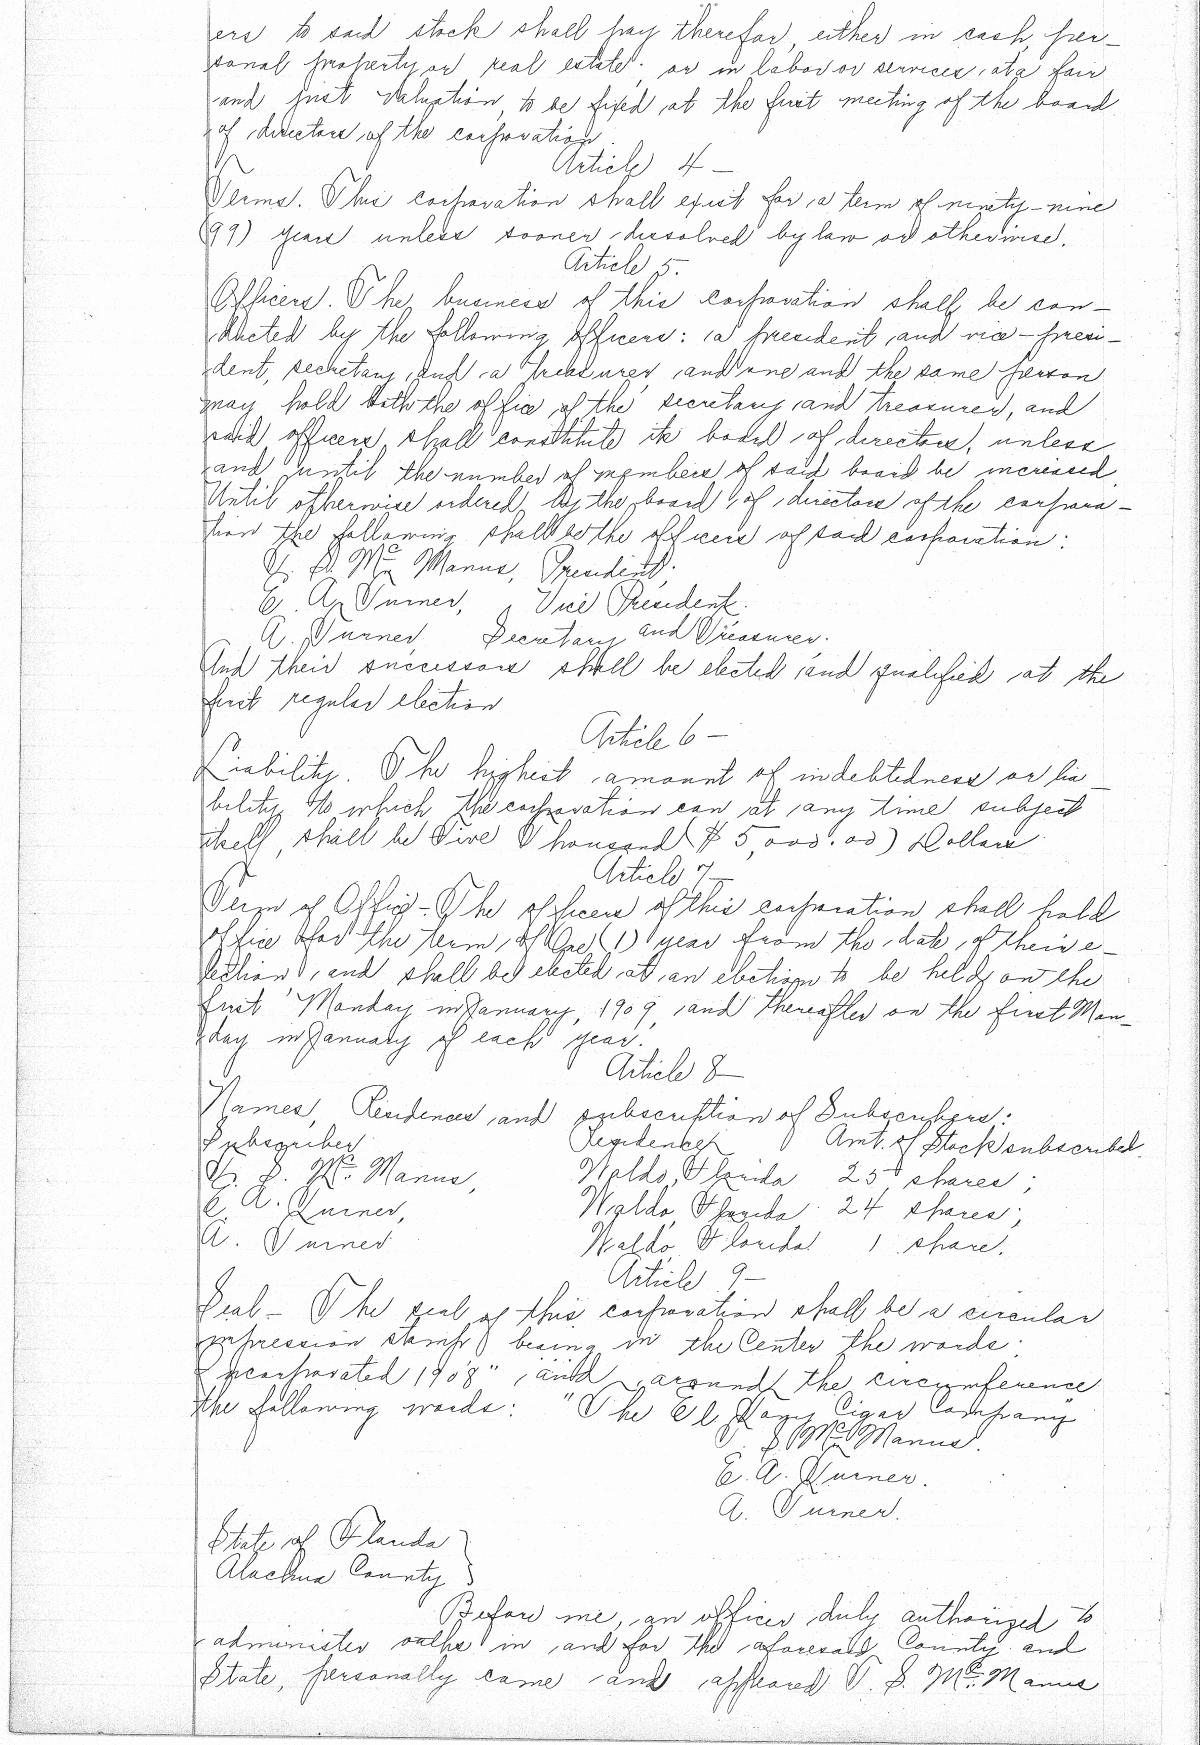 ers to said stock shall pay therefor, either in cash, per-
sonal property or real estate; or in labor or services, at a fair
and just valuation, to be fixed at the first meeting of the board
of directors of the corporation.
Article 4 -
Terms. This corporation shall exist for a term of ninety-nine
(99) years unless sooner dissolved by law or otherwise.
Article 5.
Officers. The business of this corporation shall be con-
ducted by the following officers: a president, and vice-presi-
dent, secretary, and a treasurer, and one and the same person
may hold both the office of the secretary and treasurer, and
said officers shall constitute its board of directors, unless
and until the number of members of said board be increased.
Until otherwise ordered by the board of directors of the corpora-
tion the following shall be the officers of said corporation:
T. S. McManus, President;
E. A. Turner, Vice President.
A. Turner, Secretary and Treasurer.
And their successors shall be elected and qualified at the
first regular election
Article 6 -
Liability. The highest amount of indebtedness or lia-
bility to which the corporation can at any time subject
itself, shall be Five Thousand ($5,000.00) Dollars
Article 7 -
Term of Office - The officers of this corporation shall hold
office for the term of One (1) year from the date of their e-
lection, and shall be elected at an election to be held on the
first Monday in January, 1909, and thereafter on the first Mon-
day in January of each year.
Article 8 -
Names, Residences, and subscription of Subscribers:
Subscriber Residence Amt. of Stock subscribed.
T. S. McManus, Waldo, Florida 25 shares;
E. A. Turner, Waldo, Florida 24 shares;
A. Turner Waldo, Florida 1 share.
Article 9 -
Seal - The seal of this corporation shall be a circular
impression stamp being in the Center the words:
Incorporated 1908" and around the circumference
the following words: "The El Cigar Company"
T. S. McManus.
E. A. Turner.
A. Turner.
State of Florida }
Alachua County }
Before me, an officer duly authorized to
administer oaths in and for the aforesaid County and
State, personally came and appeared T. S. McManus